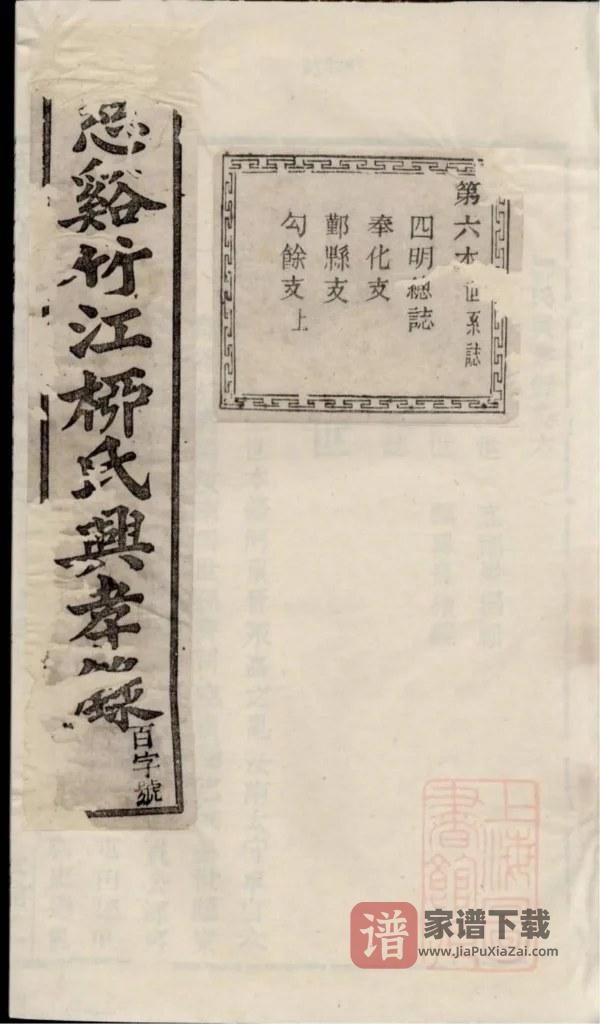 谿竹江栁氏興孝錄
百字號
第六本世系誌
四明總誌
奉化支
鄞縣支
勾餘支上
上海圖書館
谱
家谱下载
www.JiaPuXiaZai.com